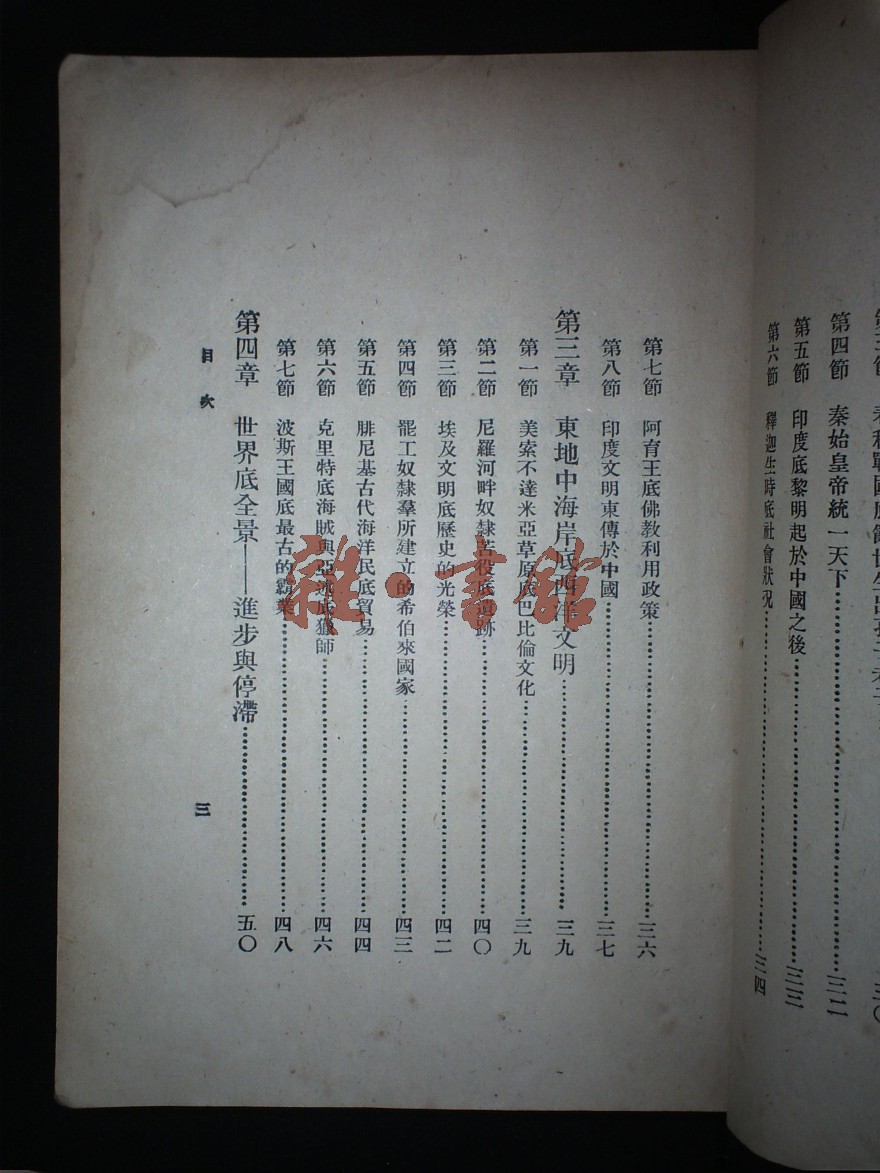 第四節 秦始皇帝統一天下………三二
第五節 印度底黎明起於中國之後………三三
第六節 釋迦生時底社會狀況………三四
第七節 阿育王底佛教利用政策………三六
第八節 印度文明東傳於中國………三七
第三章 東地中海岸底西洋文明………三九
第一節 美索不達米亞草原底巴比倫文化………三九
第二節 尼羅河畔奴隸苦役底遺跡………四〇
第三節 埃及文明底歷史的光榮………四二
第四節 罷工奴隸羣所建立的希伯來國家………四三
第五節 腓尼基古代海洋民底貿易………四四
第六節 克里特底海賊與亞述底獵師………四六
第七節 波斯王國底最古的霸業………四八
第四章 世界底全景——進步與停滯………五〇
目次
三
雜·書館